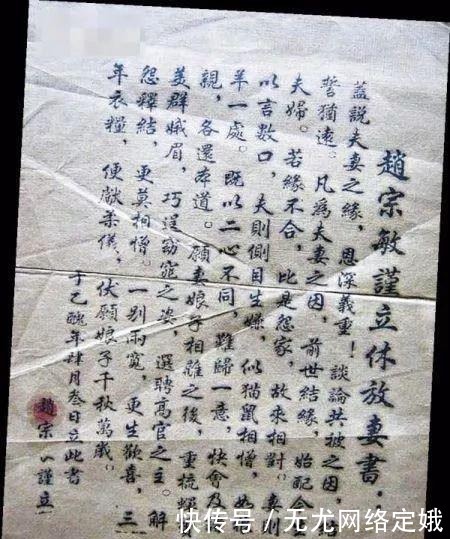 趙宗敏謹立休放妻書·
蓋説夫妻之緣，恩深義重！談論共被之因，結
誓猶遠。凡為夫妻之因，前世結緣，始配今
夫婦。若緣不合，比是怨家，故來相對。妻則
以言數口，夫則側目生嫌，似猫鼠相憎，如
羊一處。既以二心不同，難歸一意，快會及
親，各還本道。願妻娘子相離之後，重梳蟬
美群娥眉，巧逞窈窕之姿，選聘高官之主。解
怨釋結，更莫相憎。一別兩寬，更生歡喜，三
年衣糧，便獻柔儀，伏願娘子千秋萬歲。
于乙醜年肆月叁日立此書
趙宗 謹立
快传号/无尤网络定娥